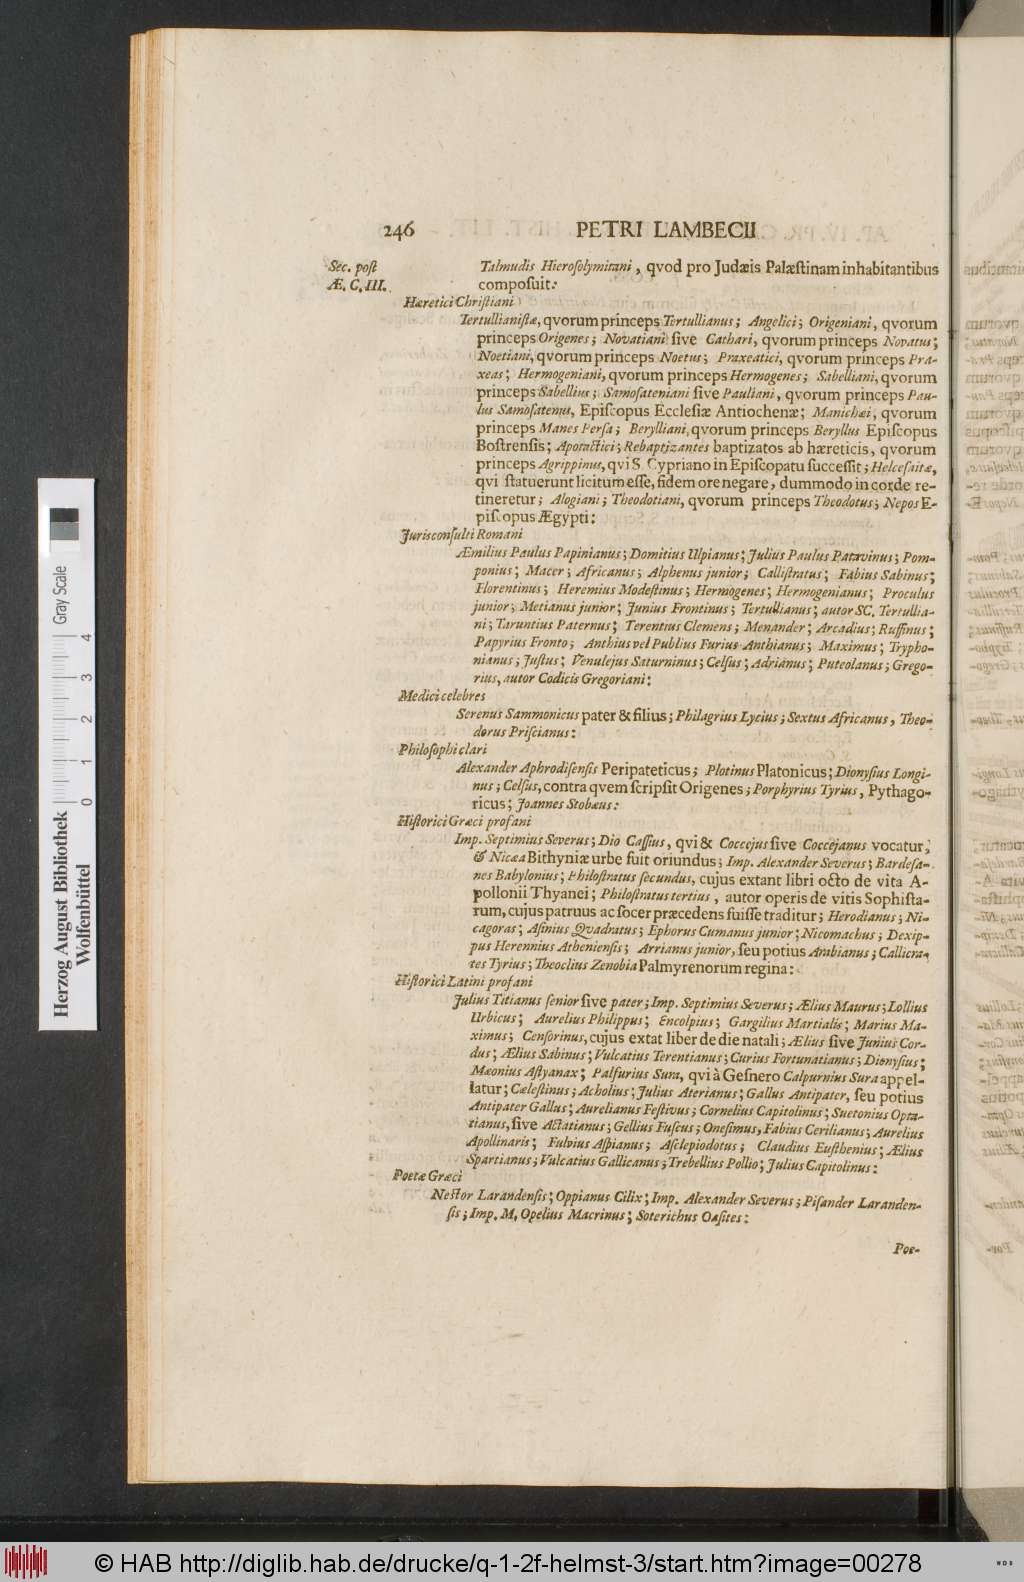 246 PETRI LAMBECII
Sec. post
Æ. C. III.
Talmudis Hierosolymitani, qvod pro Judæis Palæstinam inhabitantibus
composuit:
Hæretici Christiani
Tertullianistæ, qvorum princeps Tertullianus; Angelici; Origeniani, qvorum
princeps Origenes; Novatiani sive Cathari, qvorum princeps Novatus;
Noetiani, qvorum princeps Noetus; Praxeatici, qvorum princeps Pra-
xeas; Hermogeniani, qvorum princeps Hermogenes; Sabelliani, qvorum
princeps Sabellius; Samosateniani sive Pauliani, qvorum princeps Pau-
lus Samosatenus, Episcopus Ecclesiæ Antiochenæ; Manichæi, qvorum
princeps Manes Persa; Berylliani, qvorum princeps Beryllus Episcopus
Bostrensis; Apotactici; Rebaptizantes baptizatos ab hæreticis, qvorum
princeps Agrippinus, qvi S. Cypriano in Episcopatu successit; Helcesaitæ,
qvi statuerunt licitum esse, fidem ore negare, dummodo in corde re-
tineretur; Alogiani; Theodotiani, qvorum princeps Theodotus; Nepos E-
piscopus Ægypti:
Jurisconsulti Romani
Æmilius Paulus Papinianus; Domitius Ulpianus; Julius Paulus Patavinus; Pom-
ponius; Macer; Africanus; Alphenus junior; Callistratus; Fabius Sabinus;
Florentinus; Heremius Modestinus; Hermogenes; Hermogenianus; Proculus
junior; Metianus junior; Junius Frontinus; Tertullianus; autor SC. Tertullia-
ni; Taruntius Paternus; Terentius Clemens; Menander; Arcadius; Ruffinus;
Papyrius Fronto; Anthius vel Publius Furius Anthianus; Maximus; Trypho-
nianus; Justus; Venulejus Saturninus; Celsus; Adrianus; Puteolanus; Grego-
rius, autor Codicis Gregoriani:
Medici celebres
Serenus Sammonicus pater & filius; Philagrius Lycius; Sextus Africanus, Theo-
dorus Priscianus:
Philosophi clari
Alexander Aphrodisensis Peripateticus; Plotinus Platonicus; Dionysius Longi-
nus; Celsus, contra qvem scripsit Origenes; Porphyrius Tyrius, Pythago-
ricus; Joannes Stobæus:
Historici Græci profani
Imp. Septimius Severus; Dio Cassius, qvi & Coccejus sive Coccejanus vocatur,
& Nicæa Bithyniæ urbe fuit oriundus; Imp. Alexander Severus; Bardesa-
nes Babylonius; Philostratus secundus, cujus extant libri octo de vita A-
pollonii Thyanei; Philostratus tertius, autor operis de vitis Sophista-
rum, cujus patruus ac socer præcedens fuisse traditur; Herodianus; Ni-
cagoras; Asinius Qvadratus; Ephorus Cumanus junior; Nicomachus; Dexip-
pus Herennius Atheniensis; Arrianus junior, seu potius Anabianus; Callicra-
tes Tyrius; Theoclius Zenobia Palmyrenorum regina:
Historici Latini profani
Julius Titianus senior sive pater; Imp. Septimius Severus; Ælius Maurus; Lollius
Urbicus; Aurelius Philippus; Encolpius; Gargilius Martialis; Marius Ma-
ximus; Censorinus, cujus extat liber de die natali; Ælius sive Junius Cor-
dus; Ælius Sabinus; Vulcatius Terentianus; Curius Fortunatianus; Dionysius;
Mæonius Astyanax; Palfurius Sura, qvi à Gesnero Calpurnius Sura appel-
latur; Cælestinus; Acholius; Julius Aterianus; Gallus Antipater, seu potius
Antipater Gallus; Aurelianus Festivus; Cornelius Capitolinus; Suetonius Opta-
tianus, sive Actatianus; Gellius Fuscus; Onesimus, Fabius Cerilianus; Aurelius
Apollinaris; Fulvius Aspianus; Asclepiodotus; Claudius Eusthenius; Ælius
Spartianus; Vulcatius Gallicanus; Trebellius Pollio; Julius Capitolinus:
Poetæ Græci
Nestor Larandensis; Oppianus Cilix; Imp. Alexander Severus; Pisander Laranden-
sis; Imp. M. Opelius Macrinus; Soterichus Oasites:
Poe-
Herzog August Bibliothek
Wolfenbüttel
Gray Scale
0 1 2 3 4
© HAB http://diglib.hab.de/drucke/q-1-2f-helmst-3/start.htm?image=00278
WDB